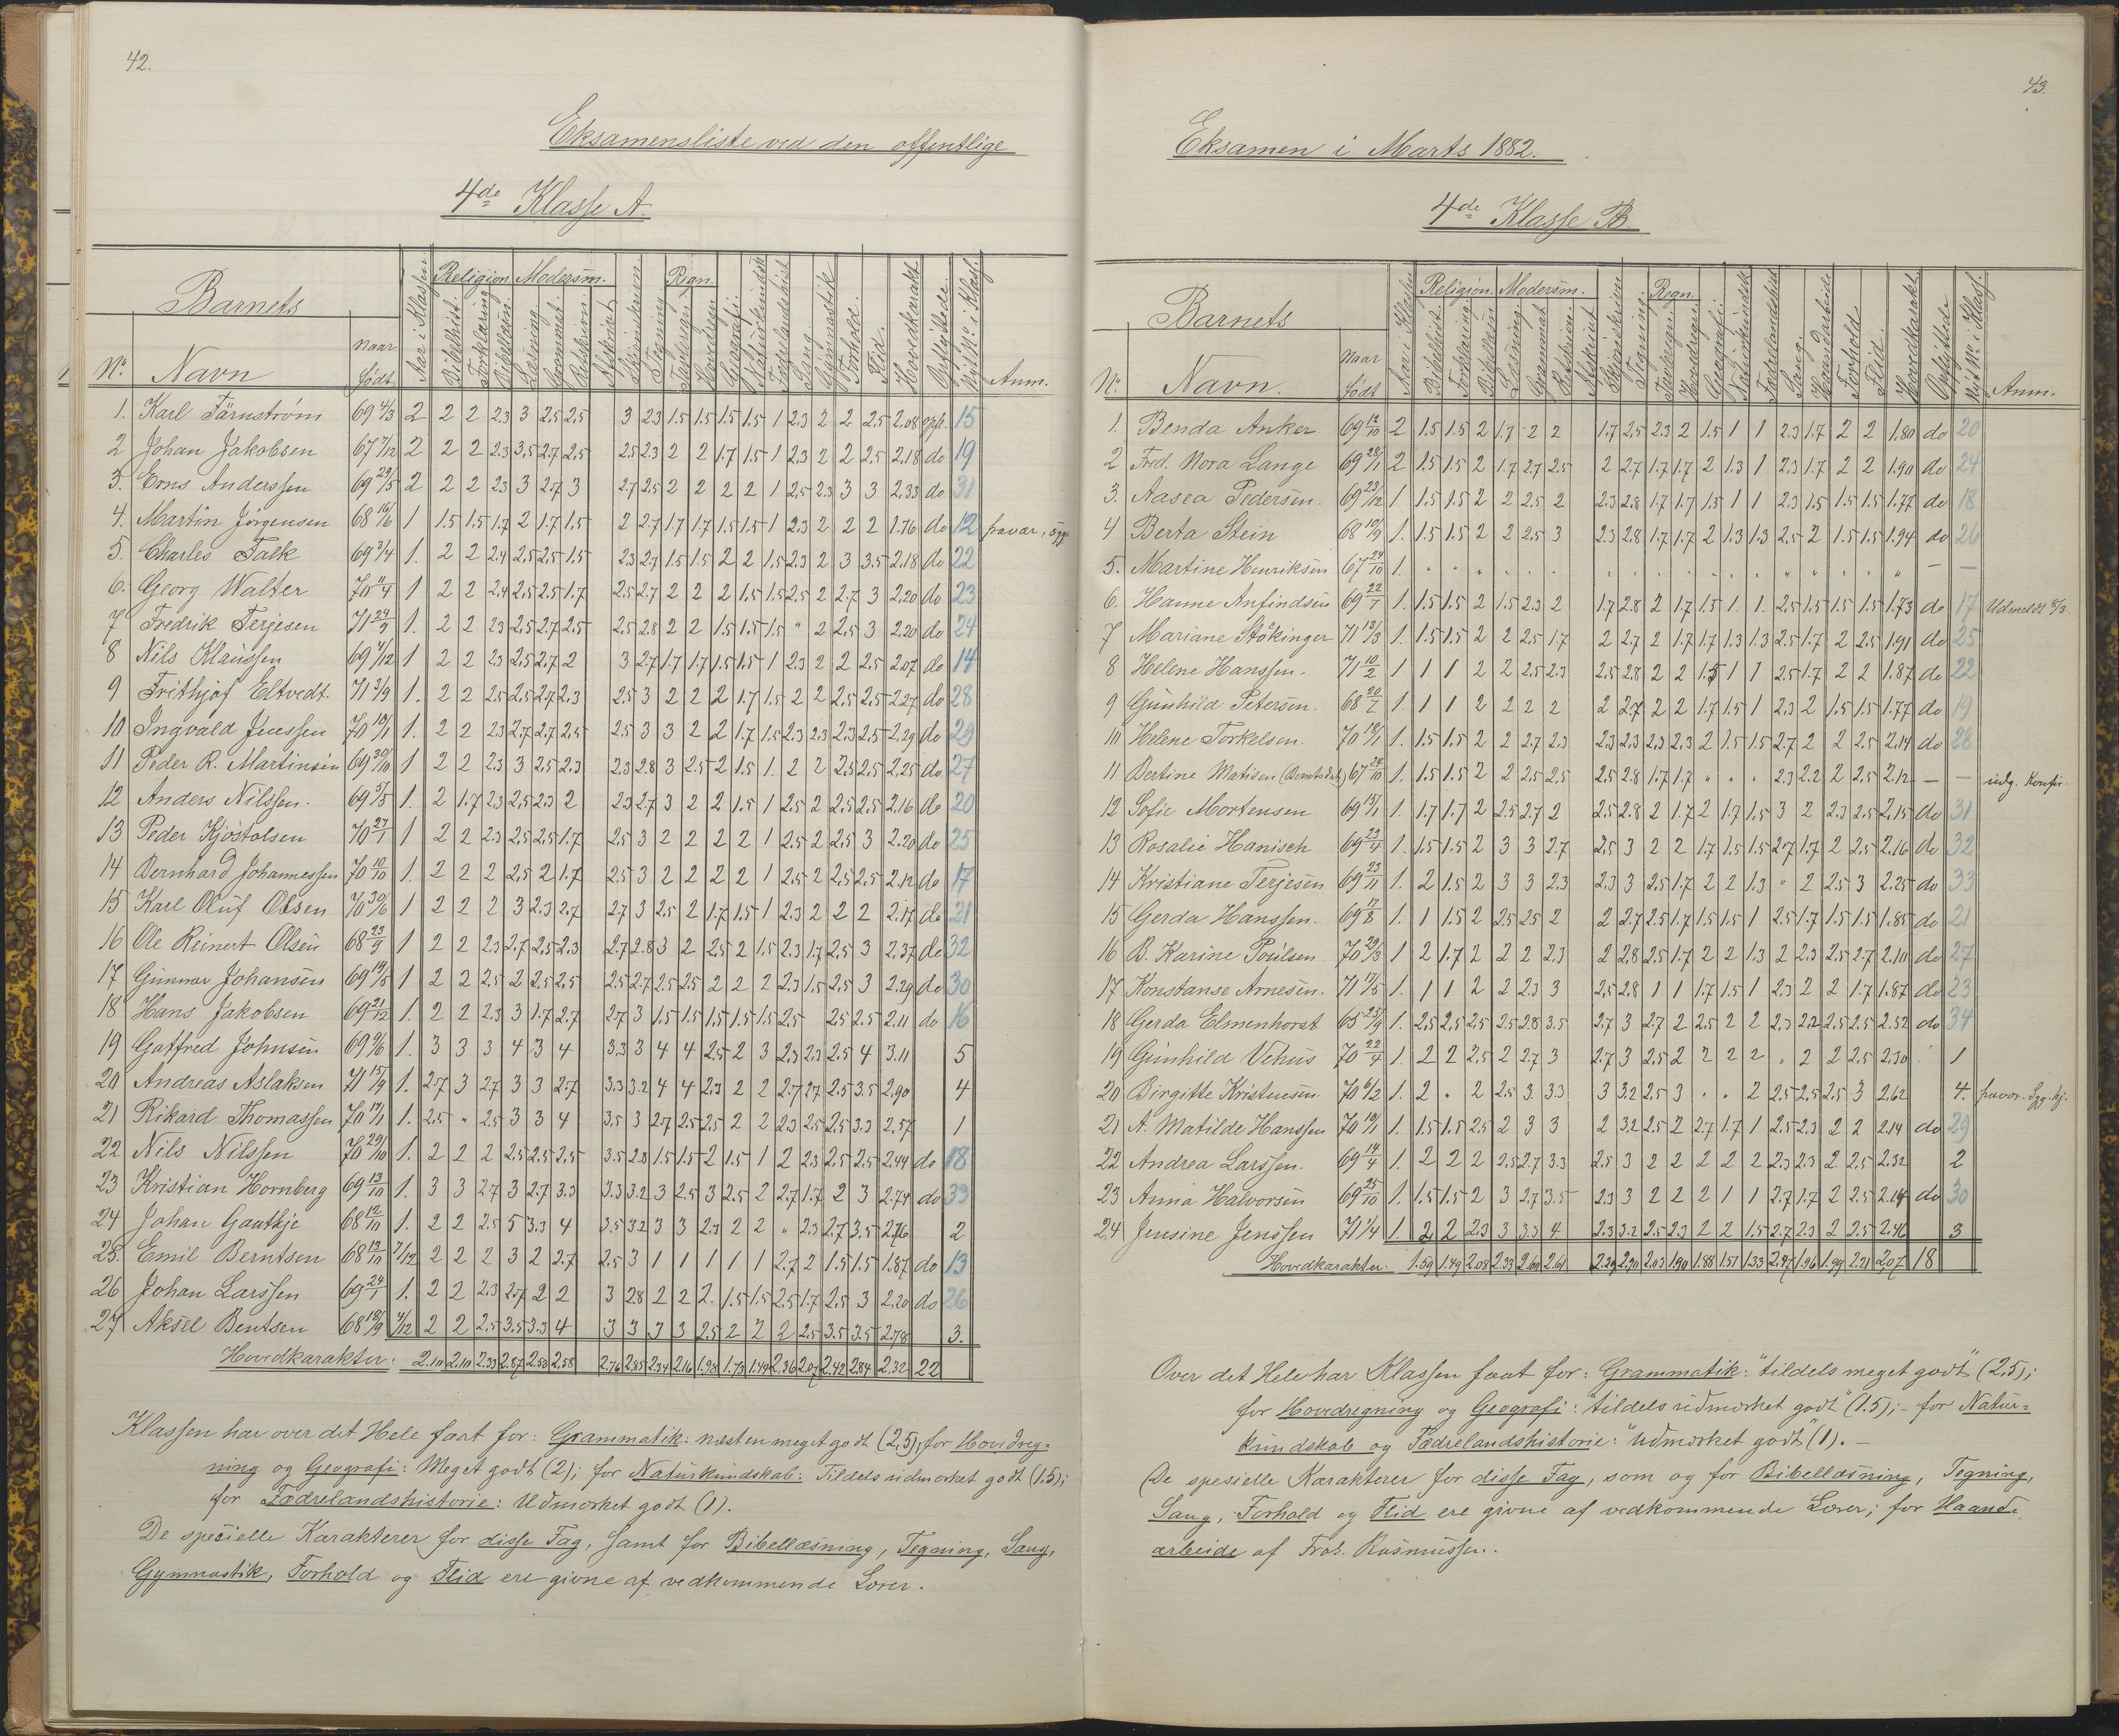 42.
Eksamensliste ved den offentlige
4de Klasse A.
Barnets
No. Navn naar født Aar i Klassen Religion Bibelhist. Forklaring Bibellæsn. Modersm. Læsning Grammat. Retskrivn. Afskrivt Skjønskriven Tegning Regn. Tavleregn Hovedregn Geografi. Naturkundsk Fædrelandshist Sang Gymnastik Forhold. Flid. Hovedkarakt Opflyttede. Nyt No. i Klass. Anm.
1. Karl Tärnstrøm 69 4/3 2 2 2 2.3 3 2.5 2.5 3 2.3 1.5 1.5 1.5 1.5 1 2.3 2 2 2.5 2.08 opfl. 15
2 Johan Jakobsen 67 7/12 2 2 2 2.3 3.5 2.7 2.5 2.5 2.3 2 2 1.7 1.5 1 2.3 2 2 2.5 2.18 do 19
3. Erns Anderssen 69 29/5 2 2 2 2.3 3 2.7 3 2.7 2.5 2 2 2 2 1 2.5 2.3 3 3 2.33 do 31
4. Martin Jörgensen 68 16/6 1 1.5 1.5 1.7 2 1.7 1.5 2 2.7 1.7 1.7 1.5 1.5 1 2.3 2 2 2 1.76 do 12
5. Charles Falk 69 3/4 1. 2 2 2.4 2.5 2.5 1.5 2.3 2.7 1.5 1.5 2 2 1.5 2.3 2 3 3.5 2.18 do 22
6. Georg Walter 70 11/4 1 2 2 2.4 2.5 2.5 1.7 2.5 2.7 2 2 2 1.5 1.5 2.5 2 2.7 3 2.20 do 23
7 Fredrik Terjesen 71 24/9 1. 2 2 2.3 2.5 2.7 2.5 2.5 2.8 2 2 1.5 1.5 1.5 " 2 2.5 3 2.20 do 24
8 Nils Klaussen 69 4/12 1 2 2 2.3 2.5 2.7 2 3 2.7 1.7 1.7 1.5 1.5 1 2.3 2 2 2.5 2.07 do 14
9 Frithjof Eltvedt. 71 3/9 1. 2 2 2.5 2.5 2.7 2.3 2.5 3 2 2 2 1.7 1.5 2 2 2.5 2.5 2.27 do 28
10 Ingvald Jenssen 70 10/1 1. 2 2 2.3 2.7 2.7 2.5 2.5 3 3 2 2 1.7 1.5 2.3 2.3 2.3 2.5 2.29 do 29
11 Peder R. Martinsen 69 30/10 1 2 2 2.3 3 2.5 2.3 2.3 2.8 3 2.5 2 1.5 1. 2 2 2.5 2.5 2.25 do 27
12 Anders Nilssen. 69 3/5 1. 2 1.7 2.3 2.5 2.3 2 2.3 2.7 3 2 2 1.5 1 2.5 2 2.5 2.5 2.16 do 20
13 Peder Kjöstolsen 70 27/1 1 2 2 2.3 2.5 2.5 1.7 2.5 3 2 2 2 2 1 2.5 2 2.5 3 2.20 do 25
14 Bernhard Johannessen 70 10/10 1. 2 2 2 2.5 2 1.7 2.5 3 2 2 2 2 1 2.5 2 2.5 2.5 2.12 do 17
15 Karl Oluf Olsen 70 30/6 1 2 2 2 3 2.3 2.7 2.7 3 2.5 2 1.7 1.5 1 2.3 2 2 2 2.17 do 21
16 Ole Reinert Olsen 68 23/9 1 2 2 2.3 2.7 2.5 2.3 2.7 2.8 3 2 2.5 2 1.5 2.3 1.7 2.5 3 2.37 do 32
17 Gunnar Johansen 69 14/5 1 2 2 2.5 2 2.5 2.5 2.5 2.7 2.5 2.5 2 2 2 2.3 1.5 2.5 3 2.29 do 30
18 Hans Jakobsen 69 21/12 1. 2 2 2.3 3 1.7 2.7 2.7 3 1.5 1.5 1.5 1.5 1.5 2.5 2.5 2.5 2.11 do 16
19 Gotfred Johnsen 69 9/6 1. 3 3 3 4 3 4 3.3 3 4 4 2.5 2 3 2.3 2.3 2.5 4 3.11 5
20 Andreas Aslaksen 71 15/9 1. 2.7 3 2.7 3 3 2.7 3.3 3.2 4 4 2.3 2 2 2.7 2.7 2.5 3.5 2.90 4
21 Rikard Thomassen 70 17/1 1. 2.5 " 2.5 3 3 4 3.5 3 2.7 2.5 2.5 2 2 2.3 2.5 2.5 3.3 2.57 1
22 Nils Nilssen 70 29/10 1. 2 2 2 2.5 2.5 2.5 3.5 2.8 1.5 1.5 2 1.5 1 2 2.3 2.5 2.5 2.44 do 18
23 Kristian Hornberg 69 13/10 1. 3 3 2.7 3 2.7 3.3 3.3 3.2 3 2.5 3 2.5 2 2.7 1.7 2 3 2.74 do 33
24 Johan Gautkje 68 12/10 1. 2 2 2.5 5 3.3 4 3.5 3.2 3 3 2.3 2 2 " 2.3 2.7 3.5 2.76 2
25. Emil Berntsen 68 13/10 7/12 2 2 2 3 2 2.7 2.5 3 1 1 1 1 1 2.7 2 1.5 1.5 1.87 do 13
26 Johan Larssen 69 24/1 1. 2 2 2.3 2.7 2 2 3 2.8 2 2 2. 1.5 1.5 2.5 1.7 2.5 3 2.20 do 26
27 Aksel Bentsen 68 18/9 4/12 2 2 2.5 3.5 3.3 4 3 3 3 3 2.5 2 2 2 2.5 3.5 3.5 2.78 3.
Hovedkarakter: 2.10 2.10 2.33 2.87 2.50 2.58 2.76 2.85 2.34 2.16 1.98 1.73 1.49 2.36 2.07 2.42 2.84 2.32 22
Klassen har over det Hele faat for: Grammatik: næsten meget godt (2,5); for Hovedreg=
ning og Geografi: Meget godt (2); for Naturkundskab: Tildels udmærket godt (1.5);
for Fædrelandshistorie: Udmærket godt (1).
De specielle Karakterer for disse Fag, samt for Bibellæsning, Tegning, Sang,
Gymnastik, Forhold og Flid ere givne af vedkommende Lærer.
43.
Eksamen i Marts 1882.
4de Klasse B.
Barnets
No. Navn. naar født Aar i Klassen Religion. Bibelhist. Forklaring Bibellæsn Modersm. Læsning. Grammat Retskrivn. Afskrivt Skjønskriven Tegning. Regn. Tavleregn. Hovedregn. Geografi. Naturkundsk Fædrelandshist Sang. Haandarbeide Forhold Flid. Hovedkarakt Opflyttede Nyt No. i Klass. Anm.
1. Benda Anker 69 12/10 2 1.5 1.5 2 1.7 2 2 1.7 2.5 2.3 2 1.5 1 1 2.3 1.7 2 2 1.80 do 20
2 Fred. Nora Lange 69 28/1 2 1.5 1.5 2 1.7 2.7 2.5 2 2.7 1.7 1.7 2 1.3 1 2.3 1.7 2 2 1.90 do 24
3. Aasea Pedersen. 69 23/12 1 1.5 1.5 2 2 2.5 2 2.3 2.8 1.7 1.7 1.5 1 1 2.3 1.5 1.5 1.5 1.77 do 18
4 Berta Stein 68 10/9 1. 1.5 1.5 2 2 2.5 3 2.3 2.8 1.7 1.7 2 1.3 1.3 2.5 2 1.5 1.5 1.94 do 26
5. Martine Henriksen 67 24/10 1. — —
6. Hanne Anfindsen 69 22/7 1. 1.5 1.5 2 1.5 2.3 2 1.7 2.8 2 1.7 1.5 1. 1. 2.5 1.5 1.5 1.5 1.73 do 17 Udmeldt 8/3.
7 Mariane Stökinger 71 13/3 1. 1.5 1.5 2 2 2.5 1.7 2 2.7 2 1.7 1.7 1.3 1.3 2.5 1.7 2 2.5 1.91 do 25
8 Helene Hanssen. 71 10/2 1 1 1 2 2 2.5 2.3 2.5 2.8 2 2 1.5 1 1 2.5 1.7 2 2 1.87 do 22
9 Gunhild Petersen. 68 20/7 1. 1 1 2 2 2 2 2 2.7 2 2 1.7 1.5 1 2.3 2 1.5 1.5 1.77 do 19
10 Helene Torkelsen. 70 18/1 1. 1.5 1.5 2 2 2.7 2.3 2.3 2.3 2.3 2.3 2 1.5 1.5 2.7 2 2 2.5 2.14 do 28
11 Bertine Matisen 67 24/10 1. 1.5 1.5 2 2 2.5 2.5 2.5 2.8 1.7 1.7 " " " 2.3 2.2 2 2.5 2.12 — — udg. Konfir.
12 Sofie Mortensen 69 15/1 1. 1.7 1.7 2 2.5 2.7 2 2.5 2.8 2 1.7 2 1.7 1.5 3 2 2.3 2.5 2.15 do 31
13 Rosalie Hanisch 69 23/4 1. 1.5 1.5 2 3 3 2.7 2.5 3 2 2 1.7 1.5 1.5 2.7 1.7 2 2.5 2.16 do 32
14 Kristiane Terjesen 69 23/11 1. 2 1.5 2 3 3 2.3 2.3 3 2.5 1.7 2 2 1.3 " 2 2.5 3 2.25 do 33
15 Gerda Hanssen. 69 17/8 1. 1 1.5 2 2.5 2.5 2 2 2.7 2.5 1.7 1.5 1.5 1 2.5 1.7 1.5 1.5 1.85 do 21
16 B. Karine Poulsen 70 29/3 1 2 1.7 2 2 2 2.3 2 2.8 2.5 1.7 2 2 1.3 2 2.3 2.5 2.7 2.10 do 27
17 Konstanse Arnesen. 71 17/5 1. 1 1 2 2 2.3 3 2.5 2.8 1 1 1.7 1.5 1 2.3 2 2 1.7 1.87 do 23
18 Gerda Elmenhorst 65 25/9 1. 2.5 2.5 2.5 2.5 2.8 3.5 2.7 3 2.7 2 2.5 2 2 2.3 2.2 2.5 2.5 2.52 do 34
19 Gunhild Vehus 70 22/4 1. 2 2 2.5 2 2.7 3 2.7 3 2.5 2 2 2 2 " 2 2 2.5 2.30 1
20 Birgitte Kristensen 70 6/2 1. 2 " 2 2.5 3 3.3 3 3.2 2.5 3 " " 2 2.5 2.5 2.5 3 2.62 4.
21 A. Matilde Hanssen 70 10/1 1. 1.5 1.5 2.5 2 3 3 2 3.2 2.5 2 2.7 1.7 1 2.5 2.3 2 2 2.14 do 29
22 Andrea Larssen. 69 14/4 1. 2 2 2 2.5 2.7 3.3 2.5 3 2 2 2 2 2 2.3 2.3 2 2.5 2.32 2
23 Anna Halvorsen 69 25/10 1. 1.5 1.5 2 3 2.7 3.5 2.3 3 2 2 2 1 1 2.7 1.7 2 2.5 2.14 do 30
24 Jensine Jenssen 71 1/4 1. 2 2 2.3 3 3.3 4 2.3 3.2 2.5 2.3 2 2 1.5 2.7 2.3 2 2.5 2.46 3
Hovedkarakter. 1.59 1.49 2.08 2.33 2.60 2.61 2.29 2.90 2.03 1.90 1.88 1.57 1.33 2.47 1.96 1.99 2.21 2.07 18
Over det Hele har Klassen faat for: Grammatik: "tildels meget godt" (2,5);
for Hovedregning og Geografi: "tildels udmærket godt" (1.5); - for Natur=
kundskab og Fædrelandshistorie: "Udmærket godt" (1). —
De spesielle Karakterer for disse Fag, som og for Bibellæsning, Tegning,
Sang, Forhold og Flid ere givne af vedkommende Lærer; for Haand-
arbeide af Frøk. Rasmussen.